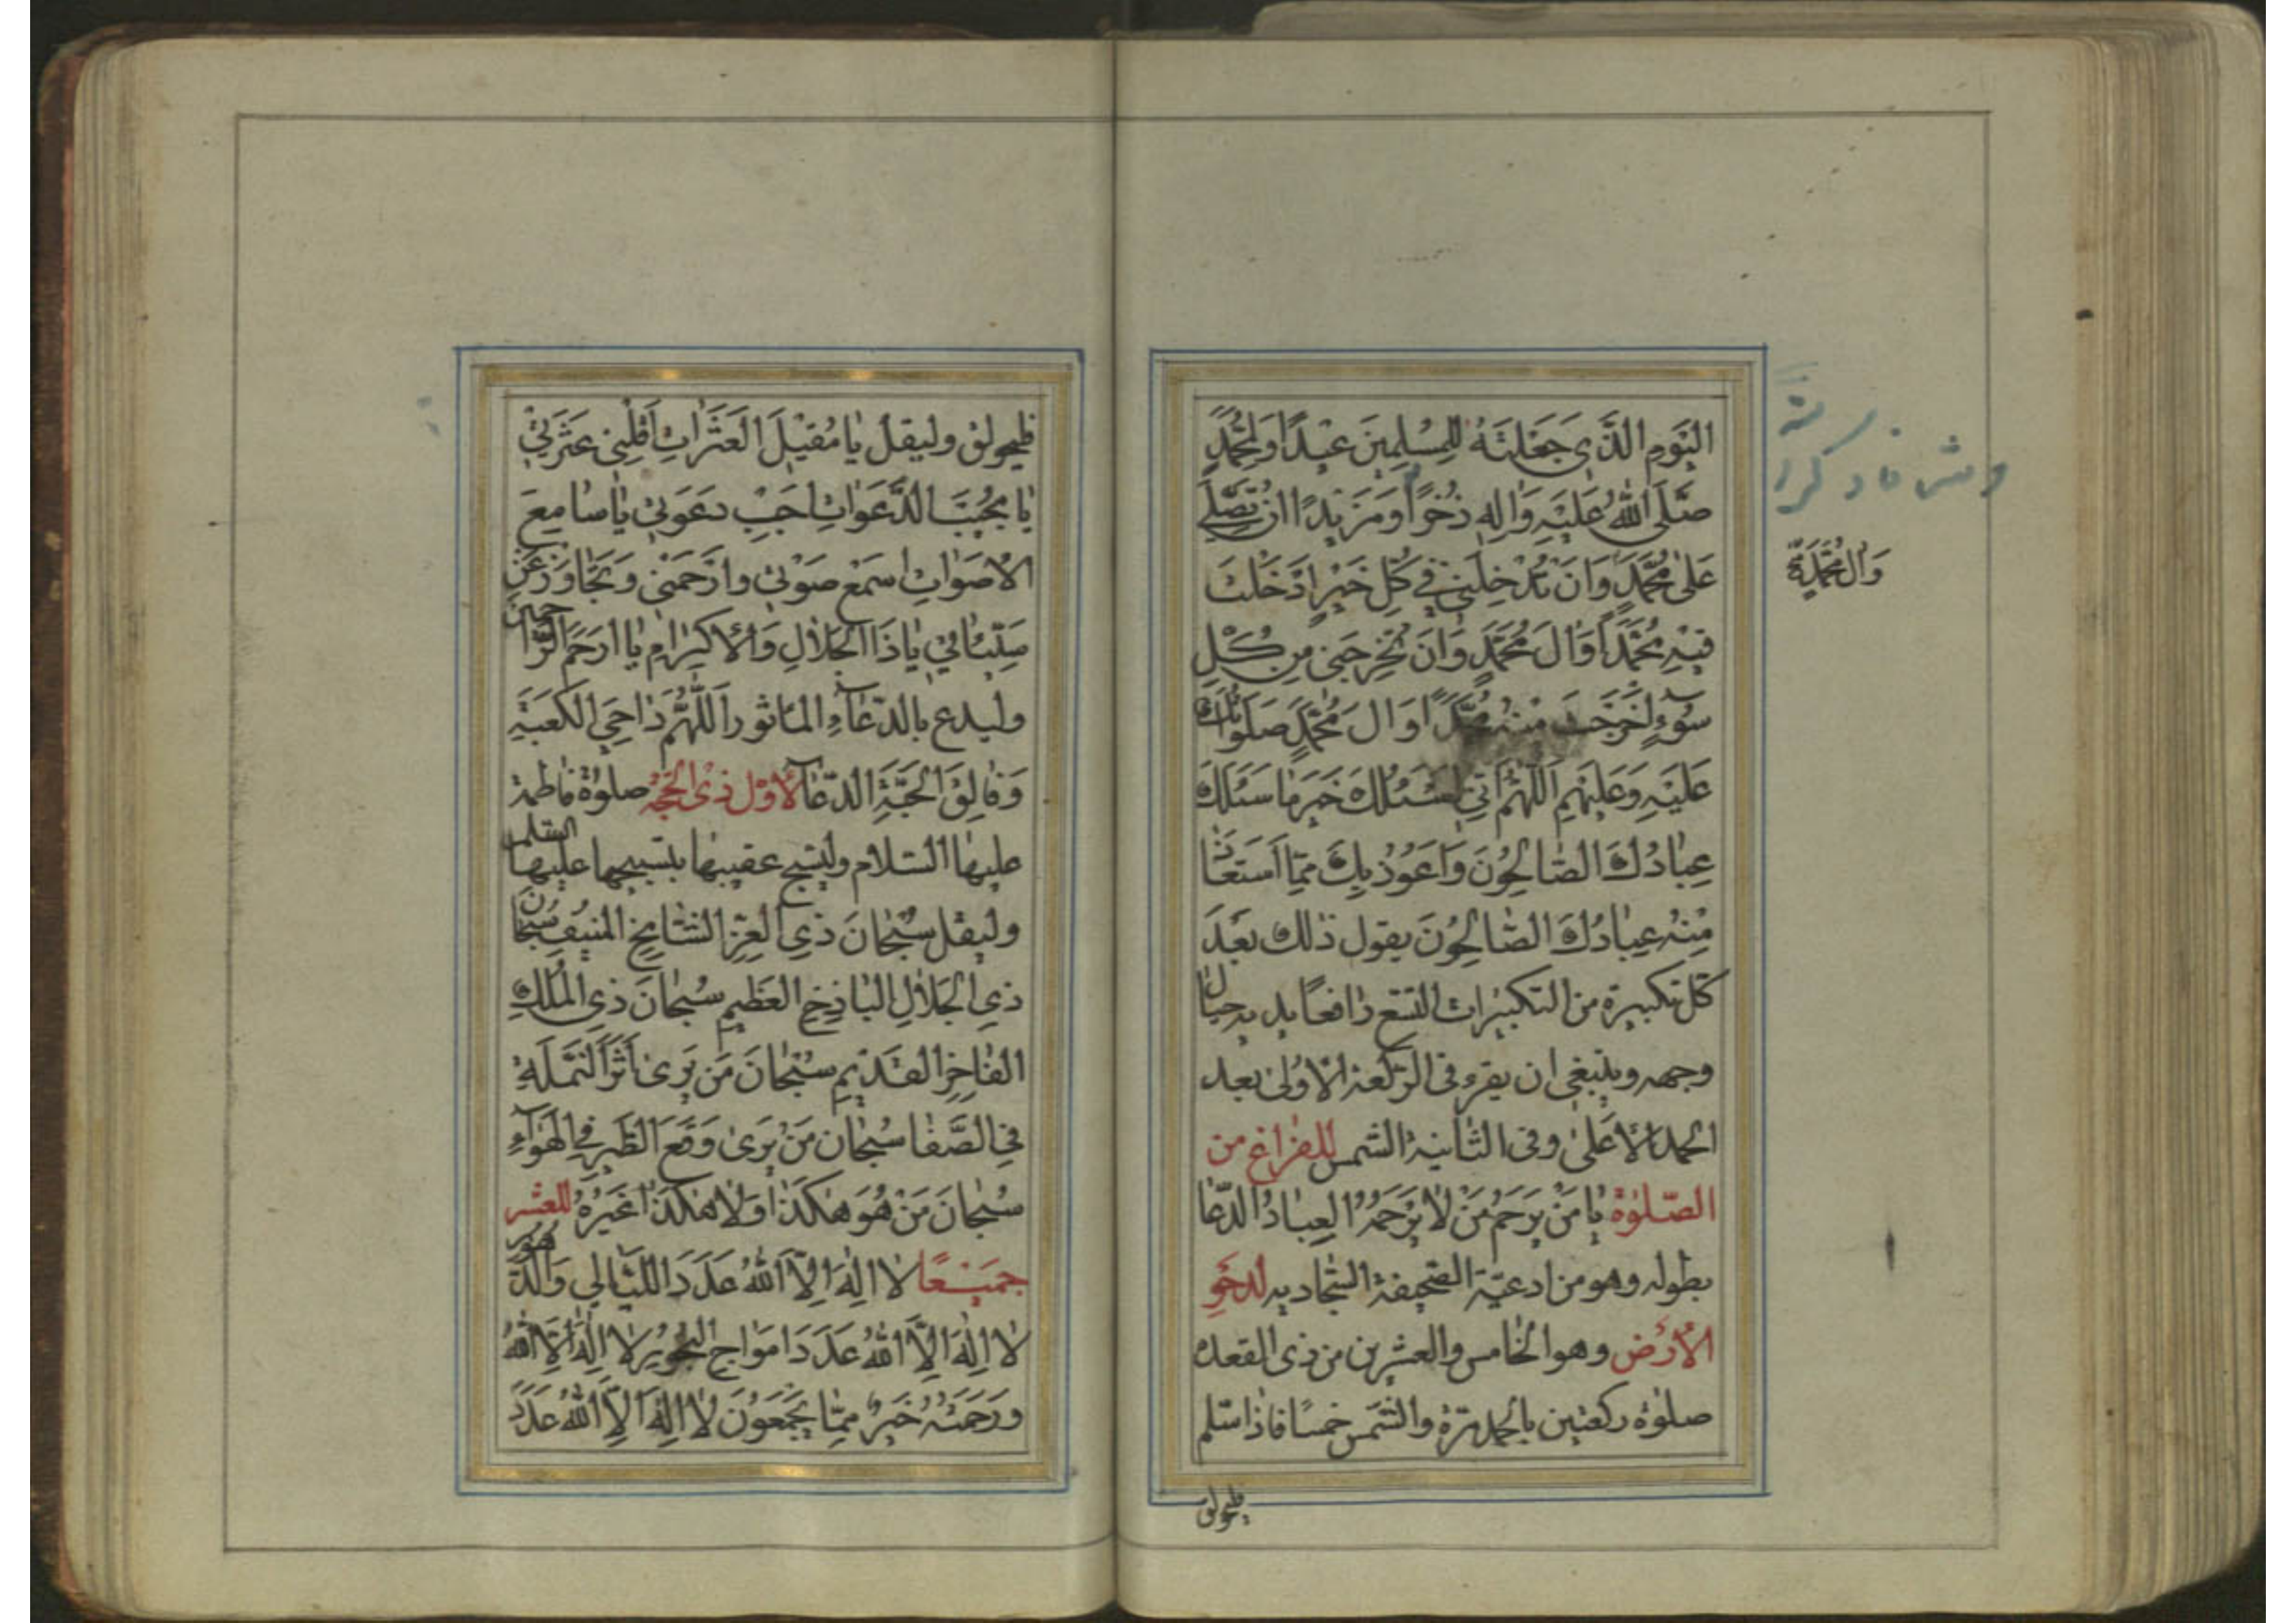 اليَومِ الَّذي جَعَلتَهُ لِلمُسلِمينَ عيدًا وَلِمُحَمَّدٍ
صَلَّى اللهُ عَلَيهِ وَالِهِ ذُخرًا وَمَزيدًا ان تُصَلِّيَ
عَلى مُحَمَّدٍ وَان تُدخِلَني في كُلِّ خَيرٍ ادخَلتَ
وَالِ مُحَمَّدٍ
فيهِ مُحَمَّدًا وَالَ مُحَمَّدٍ وَان تُخرِجَني مِن كُلِّ
سُوءٍ اخرَجتَ مِنهُ مُحَمَّدًا وَالَ مُحَمَّدٍ صَلَواتُكَ
عَلَيهِ وَعَلَيهِم اللّهُمَّ انّي اسئَلُكَ خَيرَ ما سَئَلَكَ
عِبادُكَ الصّالِحُونَ وَاَعُوذُ بِكَ مِمَّا استَعاذَ
مِنهُ عِبادُكَ الصّالِحُونَ يقول ذلك بعد
كل تكبيرة من التكبيرات التسع رافعًا يديه حيال
وجهه وينبغي ان يقرء في الركعة الاولى بعد
الحمد الاعلى وفي الثانية الشمس للفراغ من
الصّلوة يا مَن يَرحَمُ مَن لا يَرحَمُهُ العِبادُ الدّعا
بطوله وهو من ادعية الصّحيفة السّجاديه لدحو
الأرض وهو الخامس والعشرين من ذى القعدة
صلوة ركعتين بالحمد مرّة والشّمس خمسًا فاذا سلّم
فليحولق
فليحولق وليقل يا مُقيلَ العَثَراتِ اَقِلني عَثرَتي
يا مُجيبَ الدَّعَواتِ اَجِب دَعوَتي يا سامِعَ
الأصواتِ اسمَع صَوتي وارحَمني وَتَجاوَز عَن
سَيِّئاتي يا ذَا الجَلالِ وَالاكرامِ يا ارحَمَ الرّاحمين
وليدع بالدّعاءِ الماثور اَللّهُمَّ داحِيَ الكَعبَةِ
وَفالِقَ الحَبَّةِ الدّعا لأوّل ذى الحجّة صلوة فاطمة
عليها السّلام وليسبح عقيبها بتسبيحها عليها السّلم
وليقل سُبحانَ ذِي العِزِّ الشّامِخِ المُنيفِ سُبحان
ذِي الجَلالِ الباذِخِ العَظيمِ سُبحانَ ذِي المُلكِ
الفاخِرِ القَديمِ سُبحانَ مَن يَرى اَثَرَ النَّملَةِ
في الصَّفا سُبحانَ مَن يَرى وَقعَ الطَّيرِ فِي الهَواءِ
سُبحانَ مَن هُوَ هكَذا وَلا هكَذا غَيرُهُ للعشر
جميعًا لا الهَ الاَّ اللهُ عَدَدَ اللَّيالي وَالدُّهور
لا الهَ الاَّ اللهُ عَدَدَ امواجِ البُحُورِ لا الهَ الاَّ اللهُ
وَرَحمَتُهُ خَيرٌ مِمَّا يَجمَعُونَ لا الهَ الاَّ اللهُ عَدَدَ